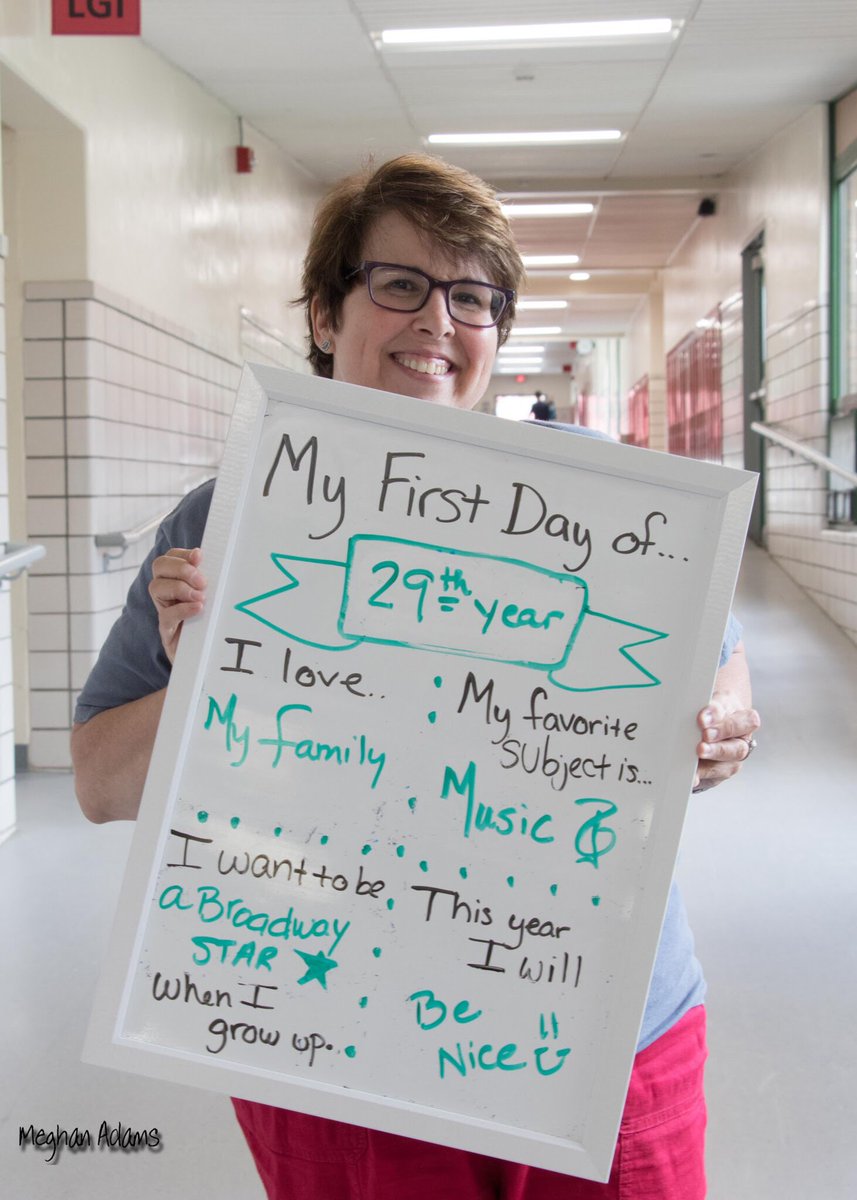 LGI
My First Day of...
29th year
I love..
My family
My favorite
subject is...
Music
I want to be
a Broadway
STAR
when I
grow up...
This year
I will
Be
Nice
Meghan Adams